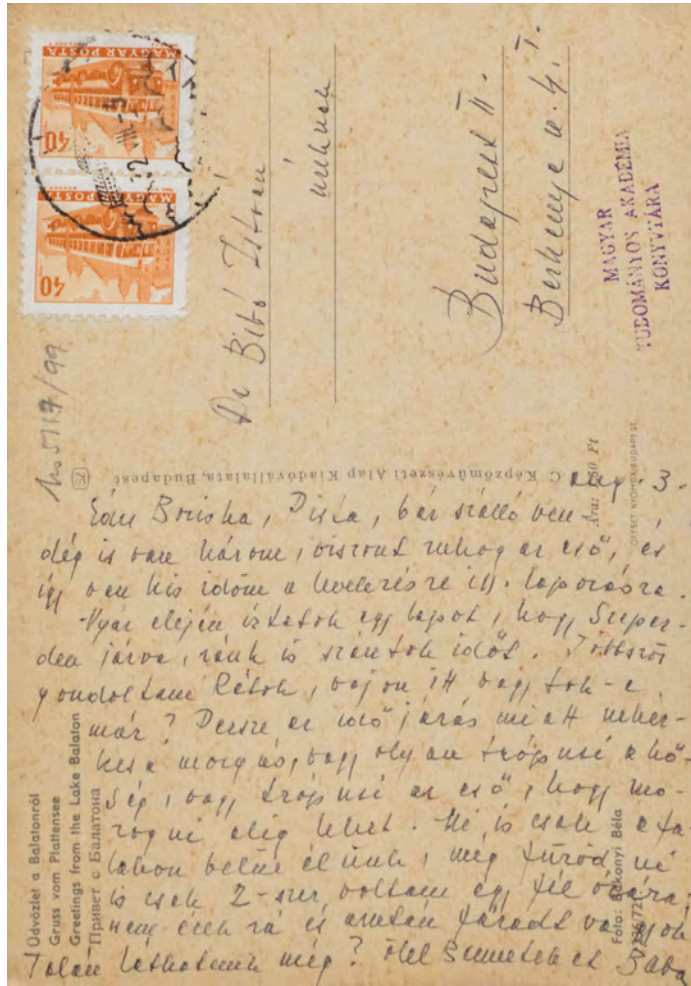 MAGYAR POSTA
40f
MAGYAR POSTA
40f
Ms 5117/99.
Dr Bibó István
úrnak
Budapest II.
Berkenye u. 4. I.
MAGYAR
TUDOMÁNYOS AKADÉMIA
KÖNYVTÁRA
C Képzőművészeti Alap Kiadóvállalata, Budapest
Ára: Ft
OFFSET NYOMDA BUDAPEST
Üdvözlet a Balatonról
Gruss vom Plattensee
Greetings from the Lake Balaton
Привет с Балатона
Foto: Bakonyi Béla
aug. 3.
Édes Boriska, Pista, bár szálló ven-
dég is van három, viszont zuhog az eső, és
így van kis időm a levelezésre ill. lapozásra.
Nyár elején írtatok egy lapot, hogy Szeper-
den járva, ránk is szántok időt. Többször
gondoltam Rátok, vajon itt vagytok-e
már? Persze az időjárás miatt neház-
kes a mozgás, vagy olyan trópusi a hő-
ség, vagy trópusi az eső, hogy mo-
zogni alig lehet. Mi is csak a fa-
lakon belül élünk, még fürödni
is csak 2-szer voltam egy fél órára,
nem érek rá és azután fáradt vagyok
Talán láthatunk még? Ölel Benneteket Sára